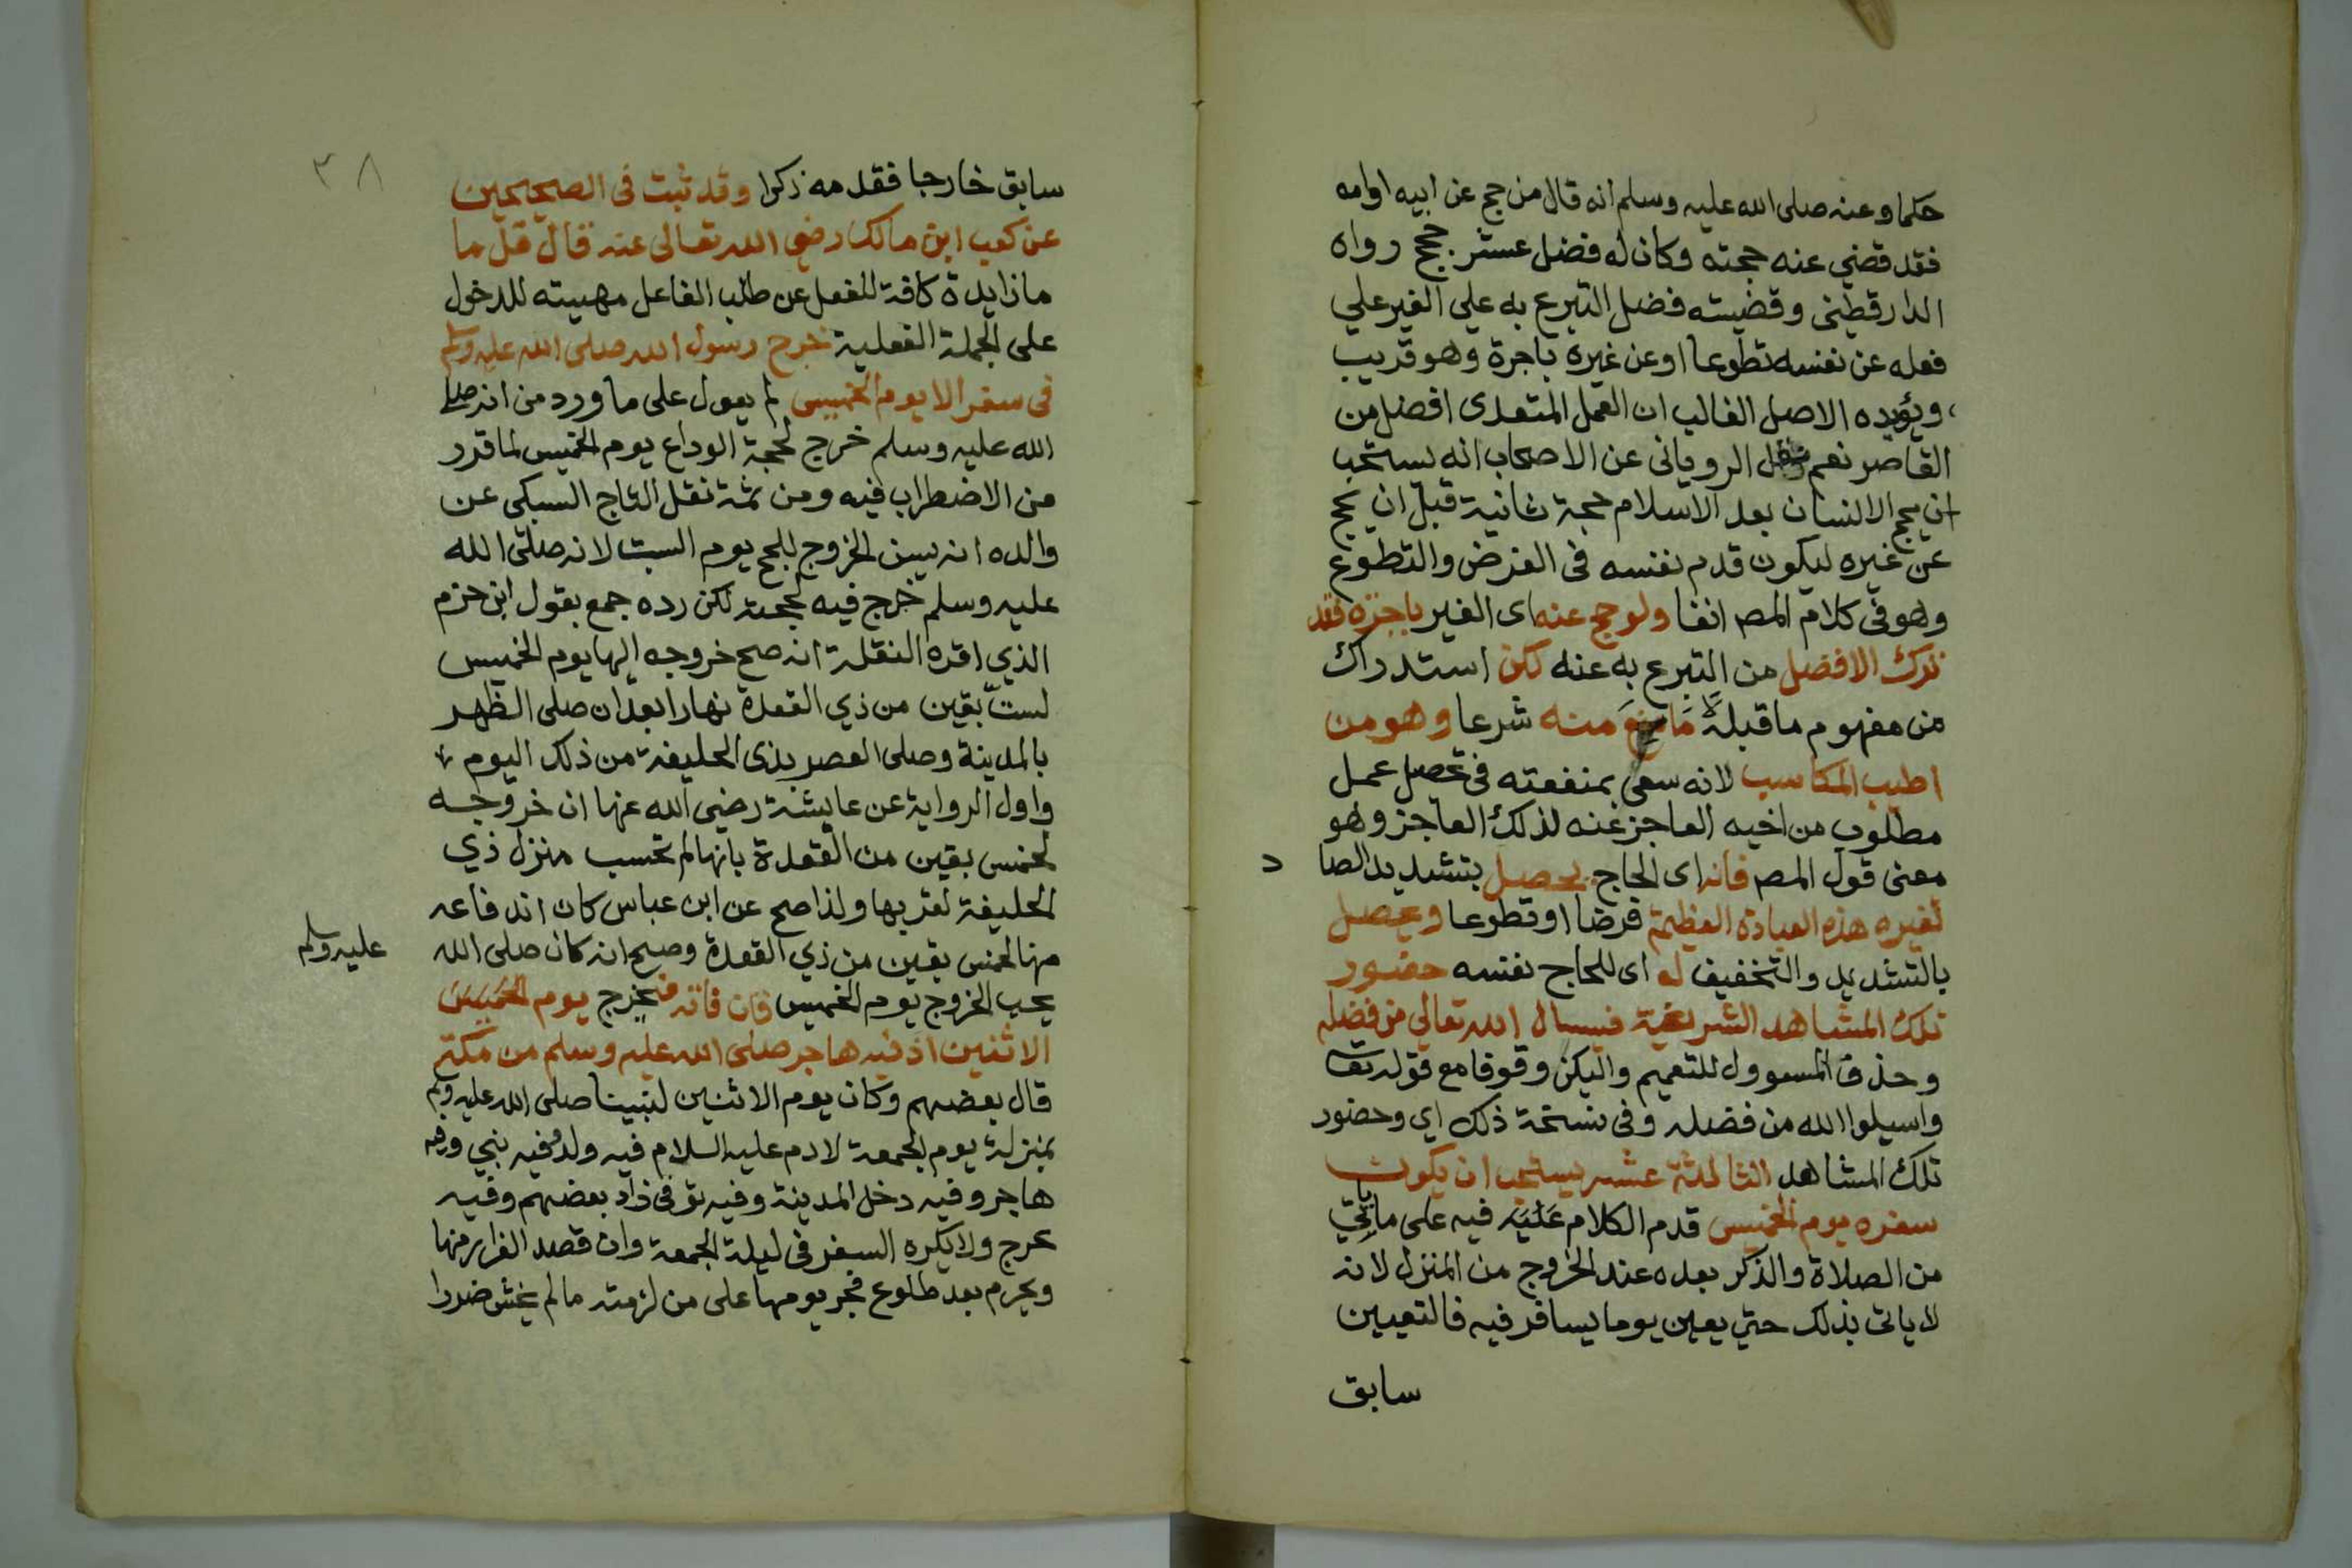 حكما وعنه صلى الله عليه وسلم انه قال من حج عن ابيه او امه
فقد قضي عنه حجته وكان له فضل عشر حجج رواه
الدارقطنى وقضيته فضل التبرع به علي الغير علي
فعله عن نفسه تطوعا او عن غيره باجرة وهو قريب
ويؤيده الاصل الغالب ان العمل المتعدى افضل من
القاصر نعم نقل الرويانى عن الاصحاب انه يستحب
ان يحج الانسان بعد الاسلام حجة ثانية قبل ان يحج
عن غيره ليكون قدم نفسه فى الفرض والتطوع
وهو فى كلام المصـ انفا ولو حج عنه اى الغير باجرة فقد
ترك الافضل من التبرع به عنه لكن استدراك
من مفهوم ما قبله لا مانع منه شرعا وهو من
اطيب المكاسب لانه سعى بمنفعته فى تحصل عمل
مطلوب من اخيه العاجز عنه لذلك العاجز وهو
معنى قول المصـ فانه اى الحاج يحصل بتشديد الصا د
لغيره هذه العبادة العظيمة فرضا او تطوعا ويحصل
بالتشديد والتخفيف له اى للحاج نفسه حضور
تلك المشاهد الشريفة فيسال الله تعالي من فضله
وحذف المسوول للتعميم وليكن وقوفا مع قوله تعا
واسيلوا الله من فضله وفى نسخة ذلك اي وحضور
تلك المشاهد الثالثة عشر يستحب ان يكون
سفره يوم الخميس قدم الكلام عليه فيه على ما ياتي
من الصلاة والذكر بعده عند الخروج من المنزل لانه
لا ياتى بذلك حتي يعين يوما يسافر فيه فالتعيين
سابق
٣٨
سابق خارجا فقدمه ذكرا وقد ثبت فى الصحيحين
عن كعب ابن مالك رضي الله تعالى عنه قال قل ما
ما زايدة كافة للفعل عن طلب الفاعل مهيئته للدخول
على الجملة الفعلية خرج رسول الله صلى الله عليه وسلم
فى سفر الا يوم الخميس لم يعول على ما ورد من انه صلى
الله عليه وسلم خرج لحجة الوداع يوم الخميس لما قرر
من الاضطراب فيه ومن ثمة نقل التاج السبكى عن
والده انه يسن الخروج للحج يوم السبت لانه صلى الله
عليه وسلم خرج فيه لحجته لكن رده جمع بقول ابن حزم
الذي اقره النقلة انه صح خروجه اليها يوم الخميس
لستّ بقين من ذي القعدة نهارا بعد ان صلى الظهر
بالمدينة وصلى العصر بذى الحليفة من ذلك اليوم
واول الرواية عن عايشة رضي الله عنها ان خروجه
لخمس بقين من القعدة بانها لم تحسب منزل ذي
الحليفة لقربها ولذا صح عن ابن عباس كان اندفاعه
منها لخمس بقين من ذي القعدة وصح انه كان صلى الله
عليه وسلم
يحب الخروج يوم الخميس فان فاته فيخرج يوم الخميس
الاثنين اذ فيه هاجر صلى الله عليه وسلم من مكة
قال بعضهم وكان يوم الاثنين لنبينا صلى الله عليه وسلم
بمنزلة يوم الجمعة لادم عليه السلام فيه ولد وفيه نبي وفيه
هاجر وفيه دخل المدينة وفيه توفى زاد بعضهم وفيه
عرج ولا يكره السفر فى ليلة الجمعة وان قصد الفرار منها
ويحرم بعد طلوع فجر يومها على من لزمته ما لم يخش ضررا